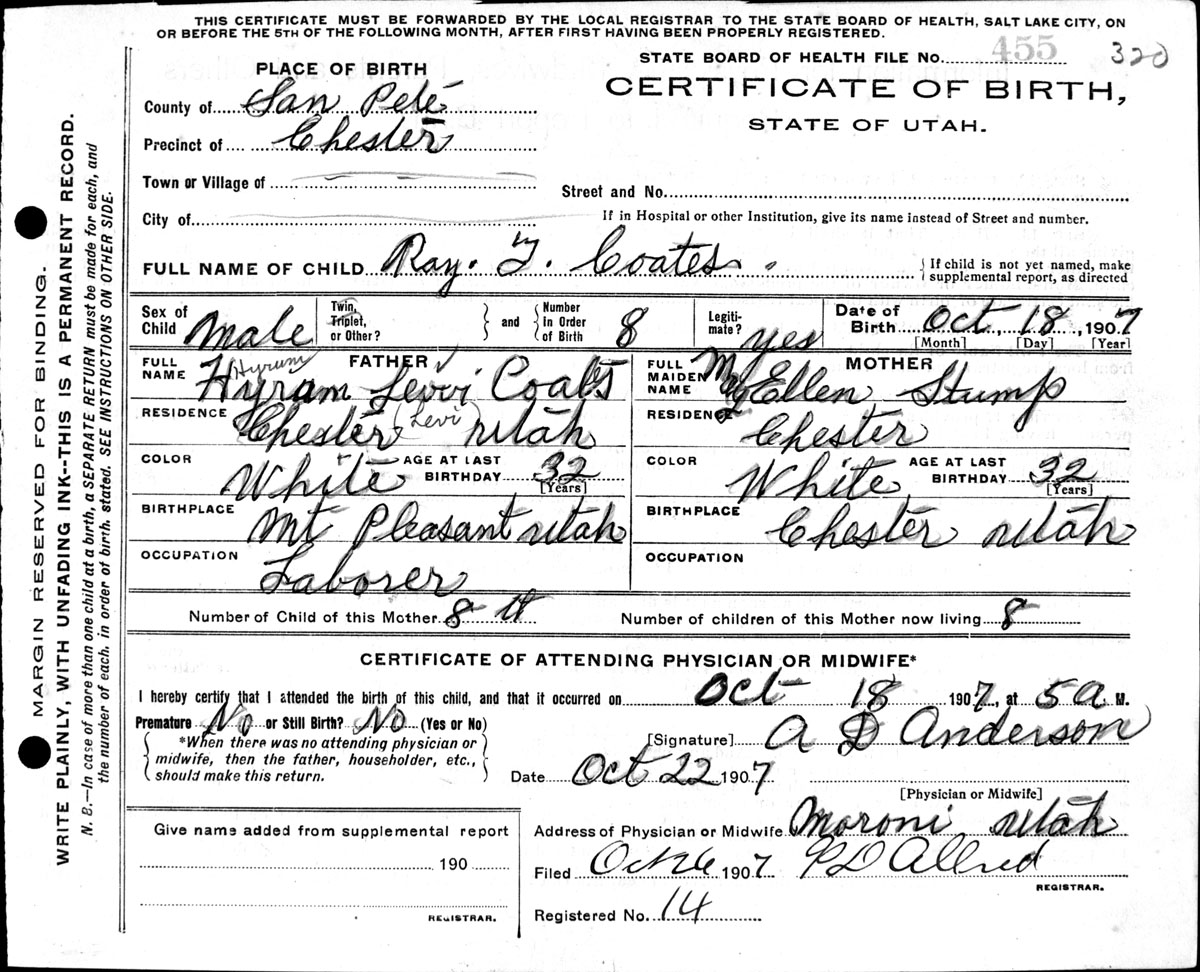 THIS CERTIFICATE MUST BE FORWARDED BY THE LOCAL REGISTRAR TO THE STATE BOARD OF HEALTH, SALT LAKE CITY, ON
OR BEFORE THE 5TH OF THE FOLLOWING MONTH, AFTER FIRST HAVING BEEN PROPERLY REGISTERED.
STATE BOARD OF HEALTH FILE No. 455 320
PLACE OF BIRTH
CERTIFICATE OF BIRTH,
STATE OF UTAH.
County of San Pete
Precinct of Chester
Town or Village of
Street and No.
City of
If in Hospital or other Institution, give its name instead of Street and number.
FULL NAME OF CHILD Ray. T. Coates
If child is not yet named, make
supplemental report, as directed
Sex of Child Male
Twin, Triplet, or Other?
and
Number in Order of Birth 8
Legiti-mate? yes
Date of Birth Oct, 18, 1907
[Month] [Day] [Year]
FATHER
FULL NAME Hyram Levvi Coats
Hyrum
(Levi)
RESIDENCE Chester Utah
COLOR White AGE AT LAST BIRTHDAY 32
[Years]
BIRTHPLACE Mt Pleasant Utah
OCCUPATION Laborer
MOTHER
FULL MAIDEN NAME Ellen Stump
RESIDENCE Chester
COLOR White AGE AT LAST BIRTHDAY 32
[Years]
BIRTHPLACE Chester Utah
OCCUPATION
Number of Child of this Mother 8 th
Number of children of this Mother now living 8
CERTIFICATE OF ATTENDING PHYSICIAN OR MIDWIFE*
I hereby certify that I attended the birth of this child, and that it occurred on Oct 18 1907, at 5 a M.
Premature No or Still Birth? No (Yes or No)
*When there was no attending physician or
midwife, then the father, householder, etc.,
should make this return.
[Signature] A D Anderson
Date Oct 22 1907
[Physician or Midwife]
Give name added from supplemental report
190
REGISTRAR.
Address of Physician or Midwife Moroni Utah
Filed Oct 26 1907 P D Allred
REGISTRAR.
Registered No. 14
MARGIN RESERVED FOR BINDING.
WRITE PLAINLY, WITH UNFADING INK--THIS IS A PERMANENT RECORD.
N. B.—In case of more than one child at a birth, a SEPARATE RETURN must be made for each, and
the number of each, in order of birth, stated. SEE INSTRUCTIONS ON OTHER SIDE.